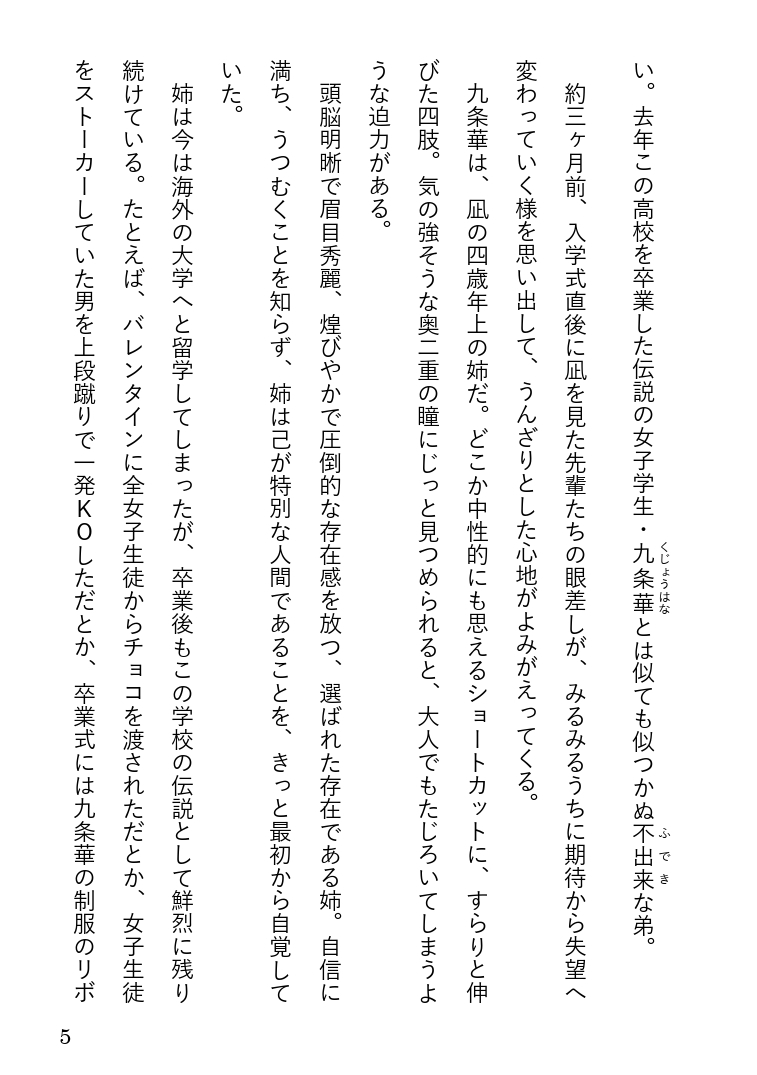 い。去年この高校を卒業した伝説の女子学生・九条華とは似ても似つかぬ不出来な弟。
くじょうはな
ふでき
　約三ヶ月前、入学式直後に凪を見た先輩たちの眼差しが、みるみるうちに期待から失望へ
変わっていく様を思い出して、うんざりとした心地がよみがえってくる。
　九条華は、凪の四歳年上の姉だ。どこか中性的にも思えるショートカットに、すらりと伸
びた四肢。気の強そうな奥二重の瞳にじっと見つめられると、大人でもたじろいてしまうよ
うな迫力がある。
　頭脳明晰で眉目秀麗、煌びやかで圧倒的な存在感を放つ、選ばれた存在である姉。自信に
満ち、うつむくことを知らず、姉は己が特別な人間であることを、きっと最初から自覚して
いた。
　姉は今は海外の大学へと留学してしまったが、卒業後もこの学校の伝説として鮮烈に残り
続けている。たとえば、バレンタインに全女子生徒からチョコを渡されただとか、女子生徒
をストーカーしていた男を上段蹴りで一発ＫＯしただとか、卒業式には九条華の制服のリボ
5